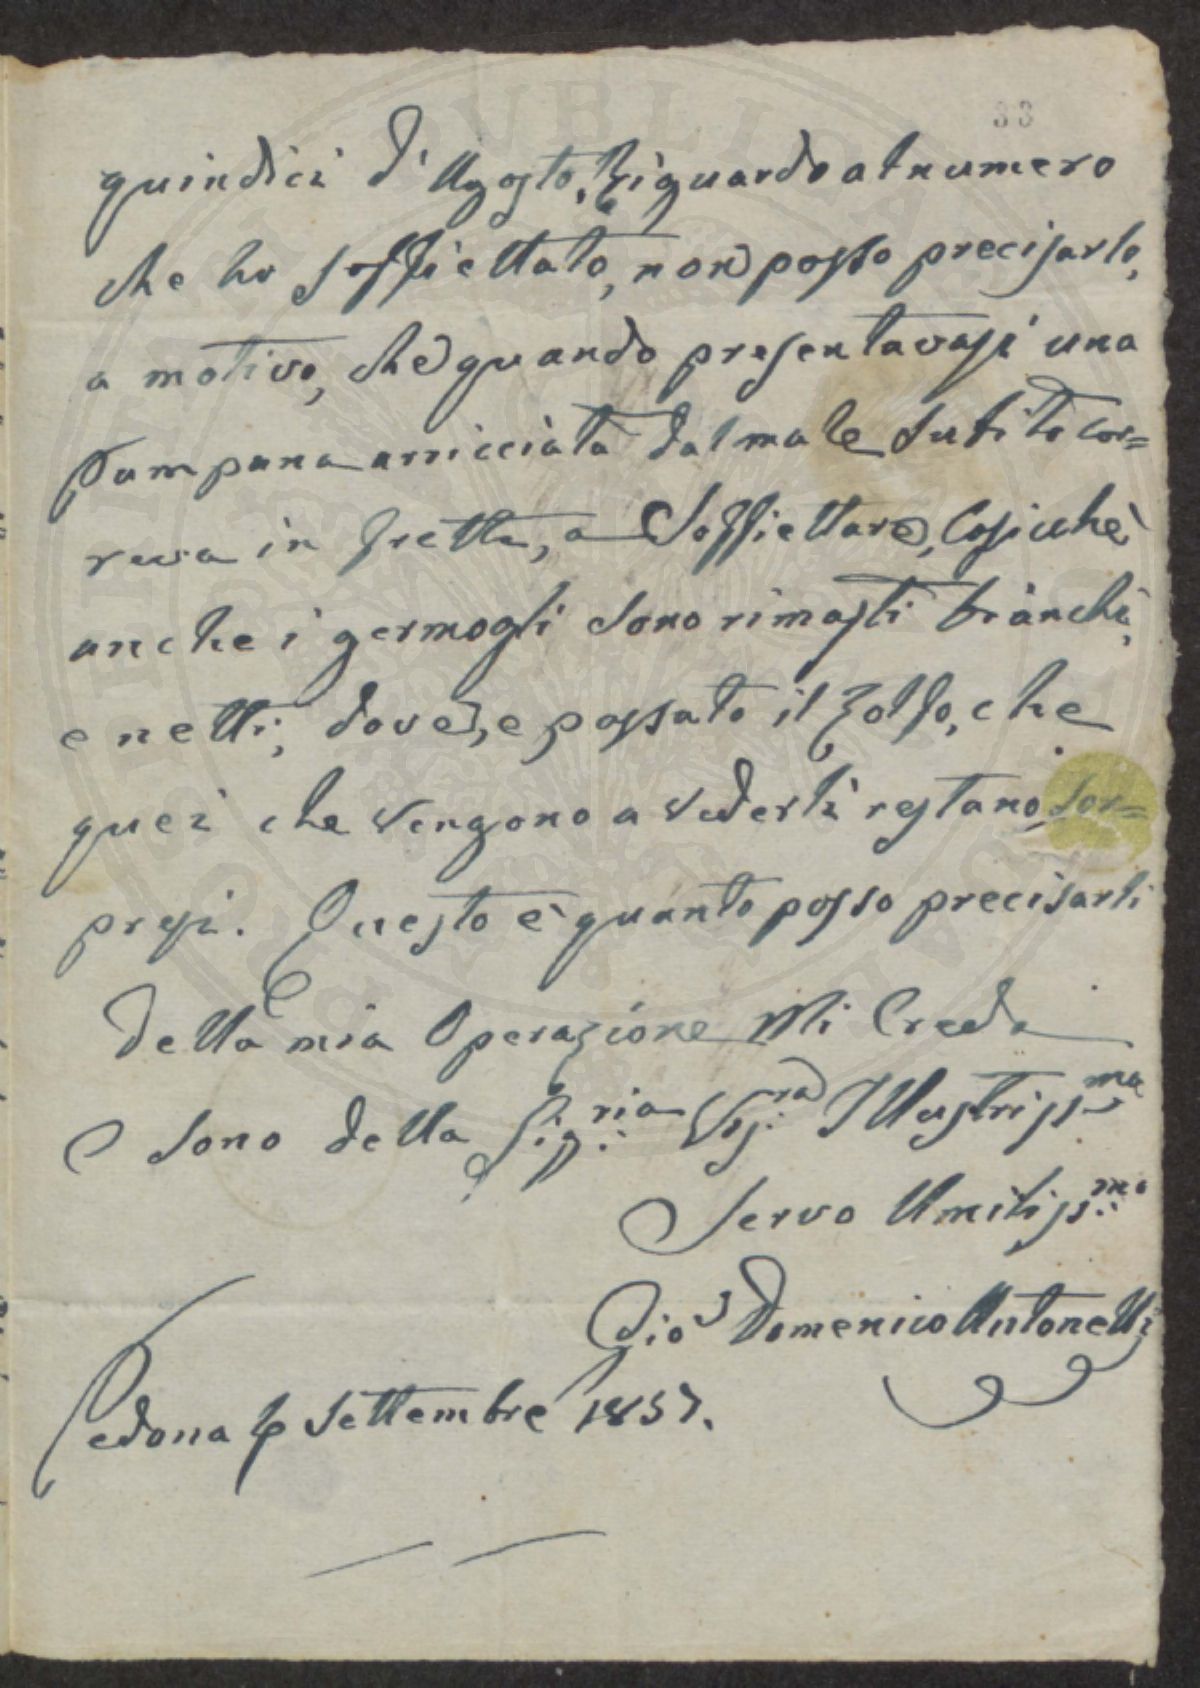 33
quindici d'Agosto. Riguardo al numero
che ho soffiettato, non posso precisarlo,
a motivo, che quando presentavasi una
pampana arricciata dal male subito cor=
reva in fretta, a Soffiettare, Cosicchè
anche i germogli sono rimasti bianchi,
e netti, dove, e passato il Zolfo, che
quei che vengono a vederli restano sor=
presi. Questo è quanto posso precisarli
della mia Operazione Mi Creda
e sono della Sig.ria Vos.ra Illustriss.ma
Servo Umiliss.mo
Gio Domenico Antonelli
Pedona settembre 1857.